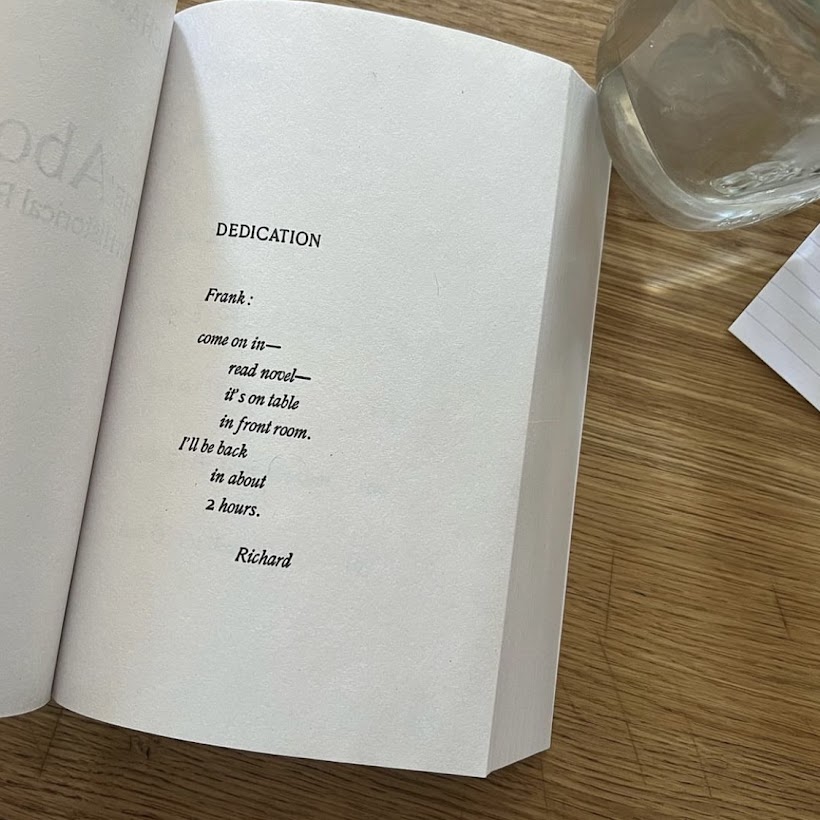 DEDICATION
Frank:
come on in—
read novel—
it's on table
in front room.
I'll be back
in about
2 hours.
Richard